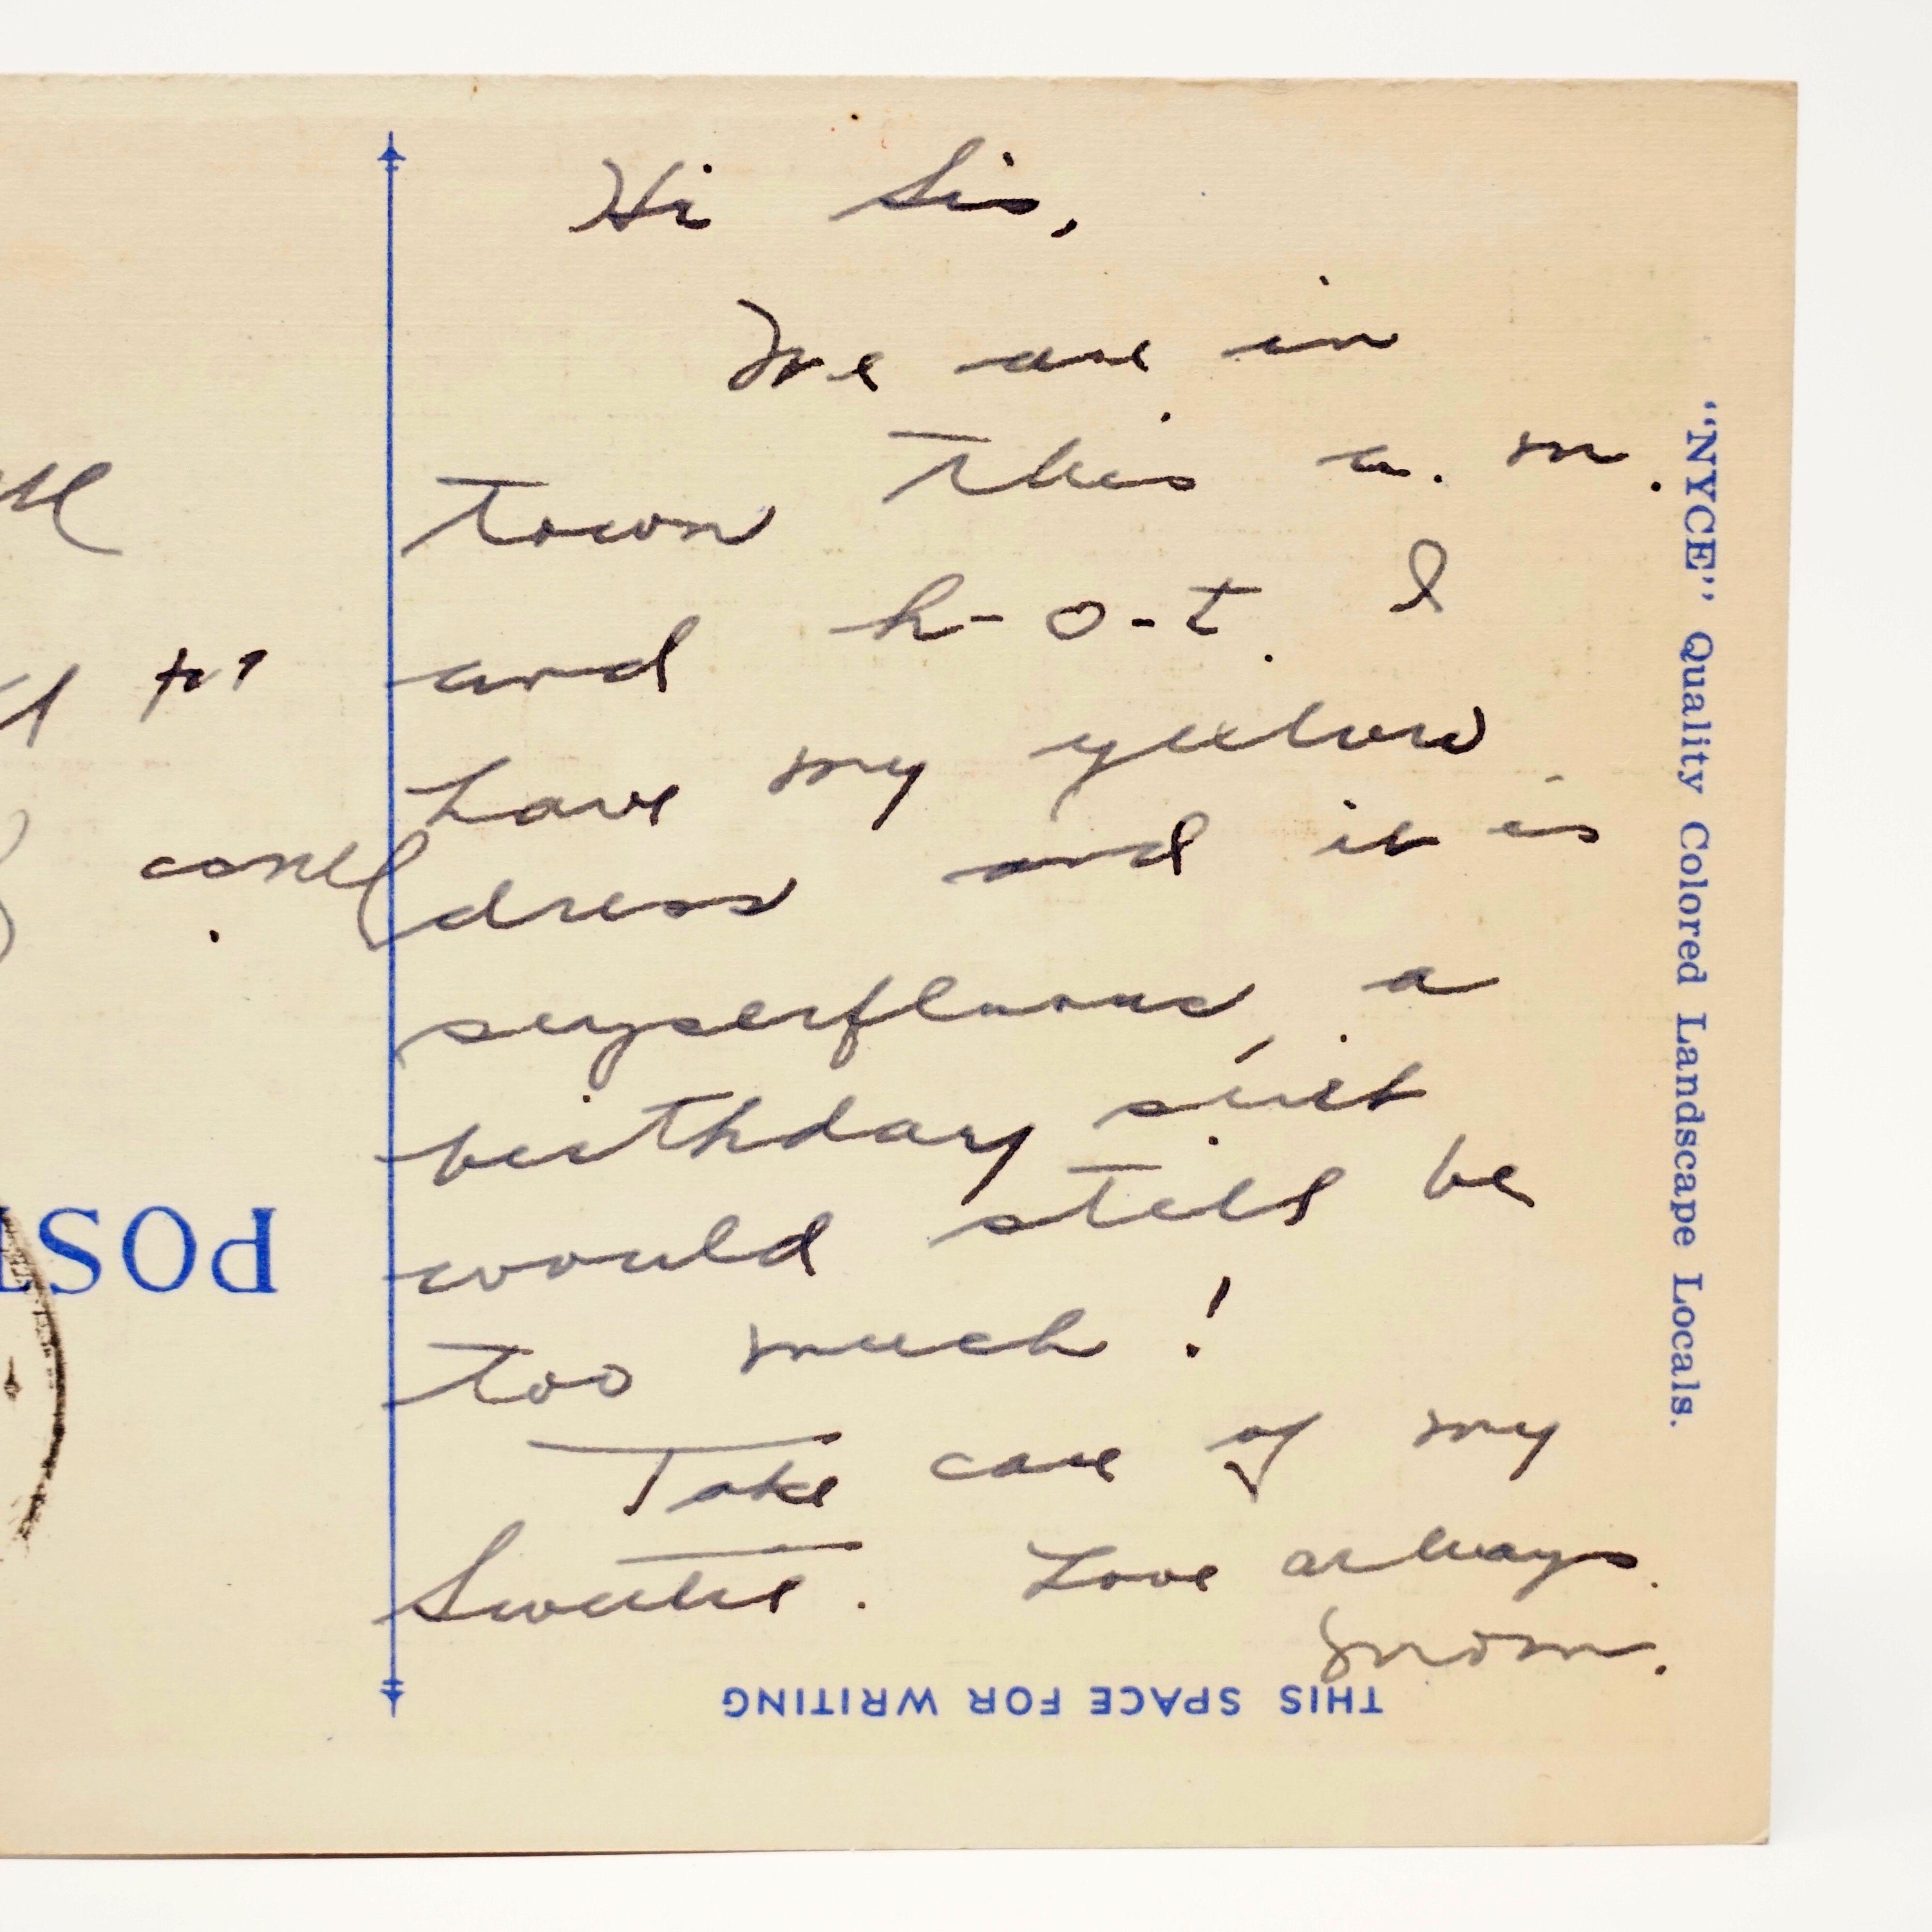 Hi Sis,
We are in
town this a. m.
and h-o-t. I
have my yellow
dress and it is
superfluous, a
birthday suit
would still be
too much!
Take care of my
Sweetie. Love always.
Mom.
THIS SPACE FOR WRITING
"NYCE" Quality Colored Landscape Locals.
POST
Conn